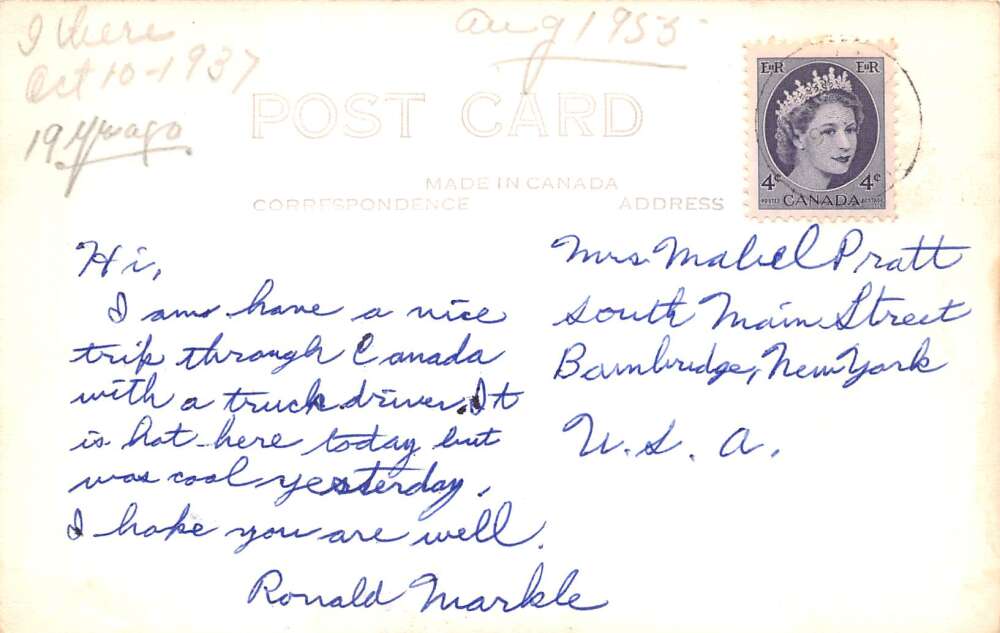 I here
Oct 10-1937
19 yrs ago
Aug 1955
POST CARD
MADE IN CANADA
CORRESPONDENCE
ADDRESS
EIIR EIIR
4¢ 4¢
POSTES CANADA POSTAGE
Hi,
I am have a nice
trip through Canada
with a truck driver. It
is hot here today but
was cool yesterday.
I hope you are well.
Ronald Markle
Mrs Mabel Pratt
South Main Street
Bambridge, New York
U.S.A.